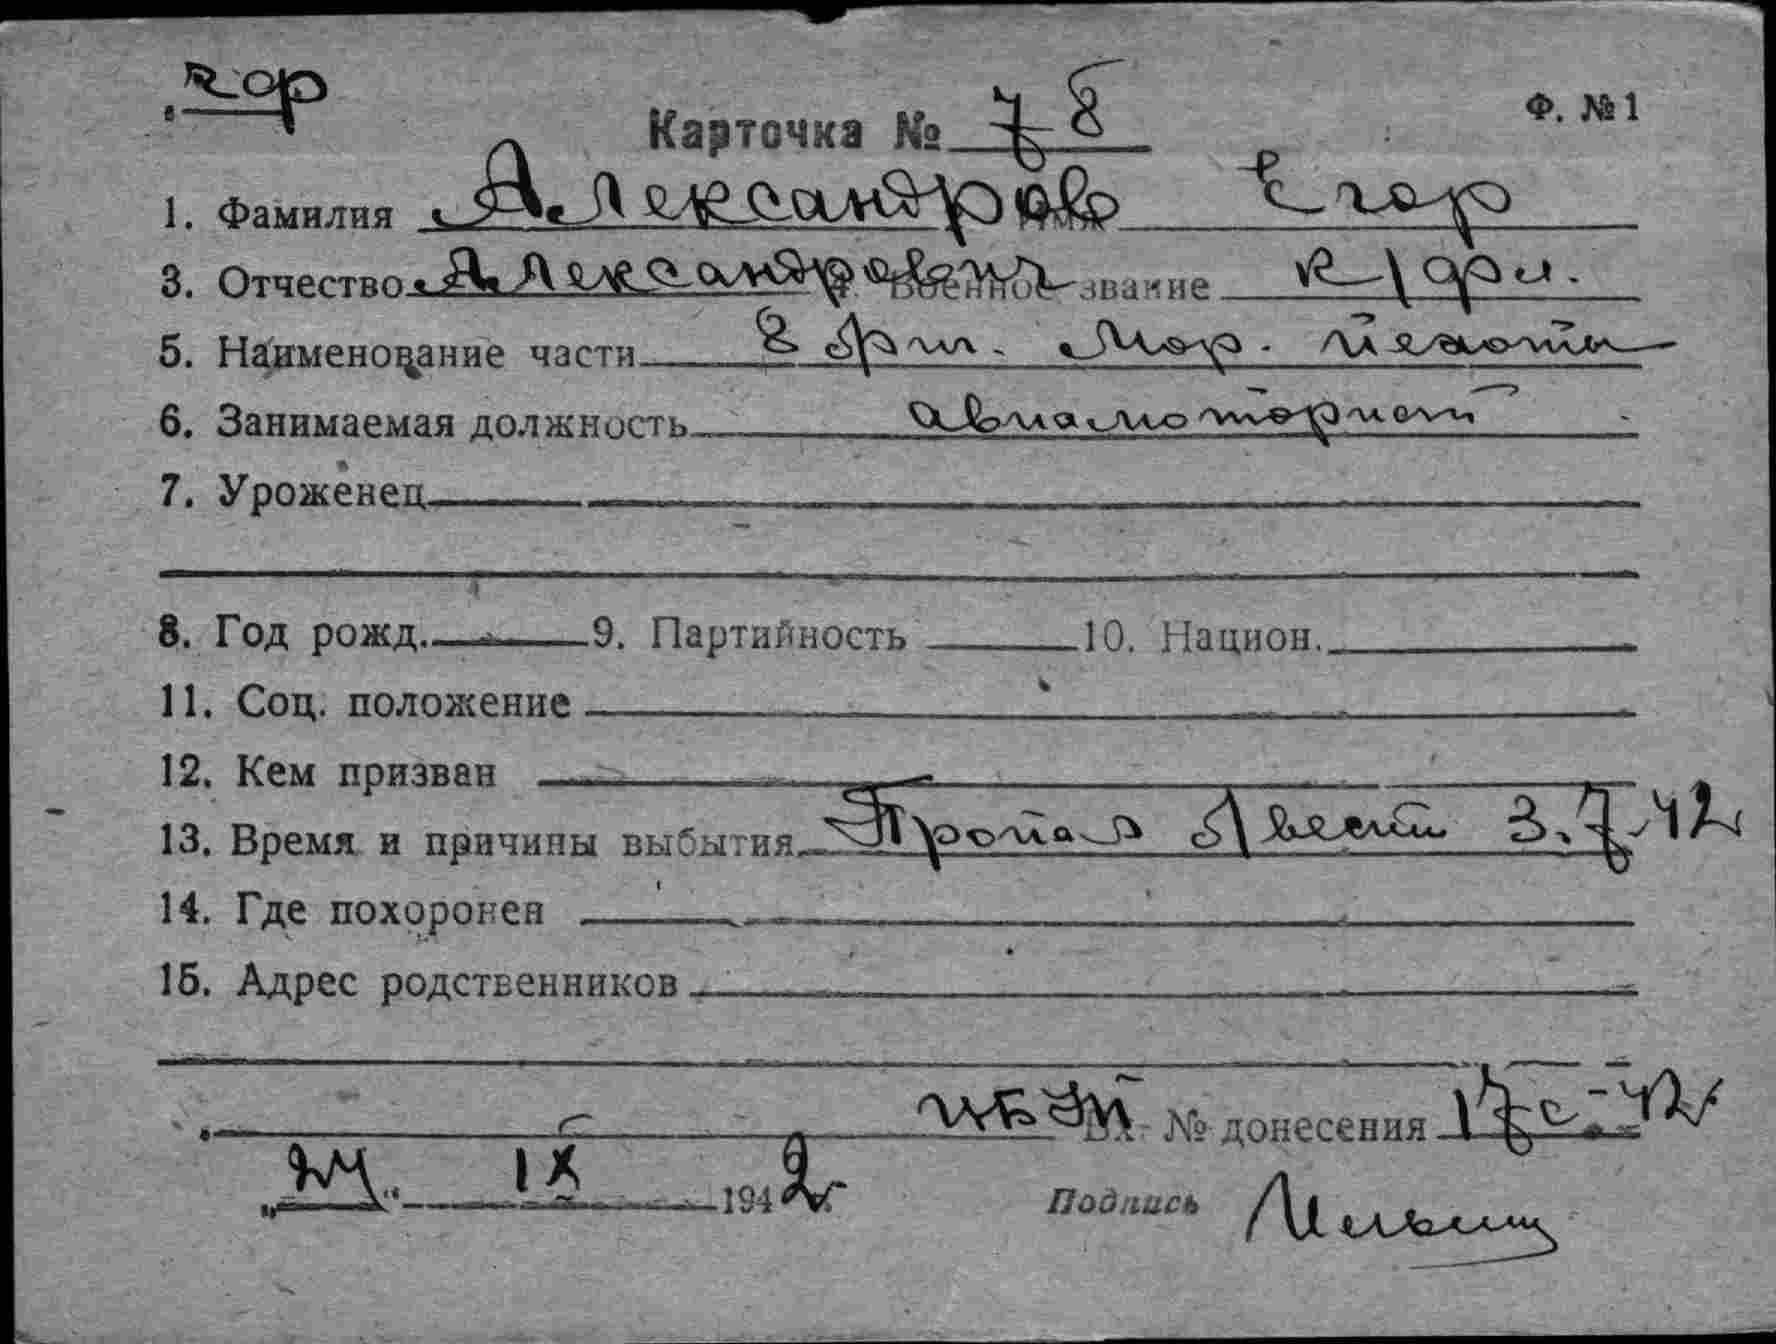 чор
Карточка № 78 Ф. №1
1. Фамилия Александров Имя Егор
3. Отчество Александрович 4. Военное звание к/фл.
5. Наименование части 8 брт. Мор. пехоты
6. Занимаемая должность авиамоторист
7. Уроженец
8. Год рожд. 9. Партийность 10. Национ.
11. Соц. положение
12. Кем призван
13. Время и причины выбытия Пропал б/вести 3.7.42
14. Где похоронен
15. Адрес родственников
Вх. № донесения 17с-42
„24“ IX 1942
Подпись